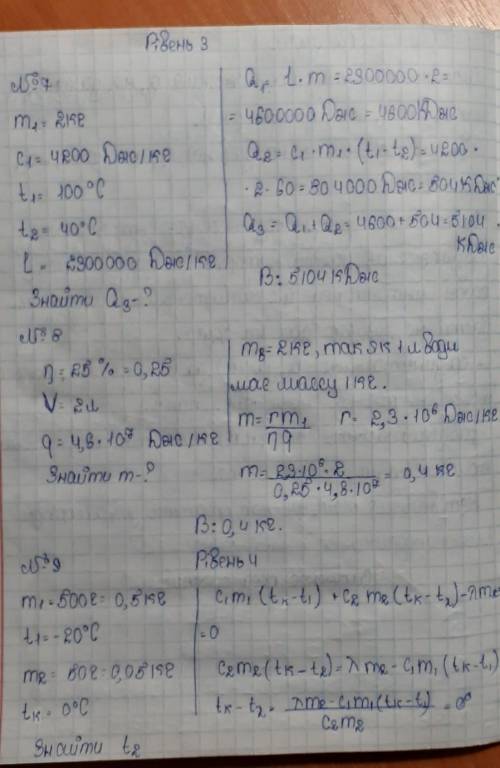 Рівень 3
№7
m₁ = 2кг
c₁ = 4200 Дж/кг
t₁ = 100°C
t₂ = 40°C
L = 2300000 Дж/кг
Знайти Q₃ - ?
Q₁ = L · m = 2300000 · 2 =
= 4600000 Дж = 4600 кДж
Q₂ = c₁ · m₁ · (t₁ - t₂) = 4200 ·
· 2 · 60 = 504000 Дж = 504 кДж
Q₃ = Q₁ + Q₂ = 4600 + 504 = 5104
кДж
В: 5104 кДж
№8
η = 25% = 0,25
V = 2л
q = 4,6 · 10⁷ Дж/кг
Знайти m - ?
m₈ = 2кг, так як 1л води
має массу 1кг.
m = rm₁/ηq r = 2,3 · 10⁶ Дж/кг
m = 2,3·10⁶·2/0,25·4,6·10⁷ = 0,4 кг
В: 0,4 кг.
Рівень 4
№9
m₁ = 500г = 0,5кг
t₁ = -20°C
m₂ = 50г = 0,05кг
tк = 0°C
Знайти t₂
c₁m₁(tк - t₁) + c₂m₂(tк - t₂) - λm₂
= 0
c₂m₂(tк - t₂) = λm₂ - c₁m₁(tк - t₁)
tк - t₂ = λm₂ - c₁m₁(tк - t₁)/c₂m₂ =